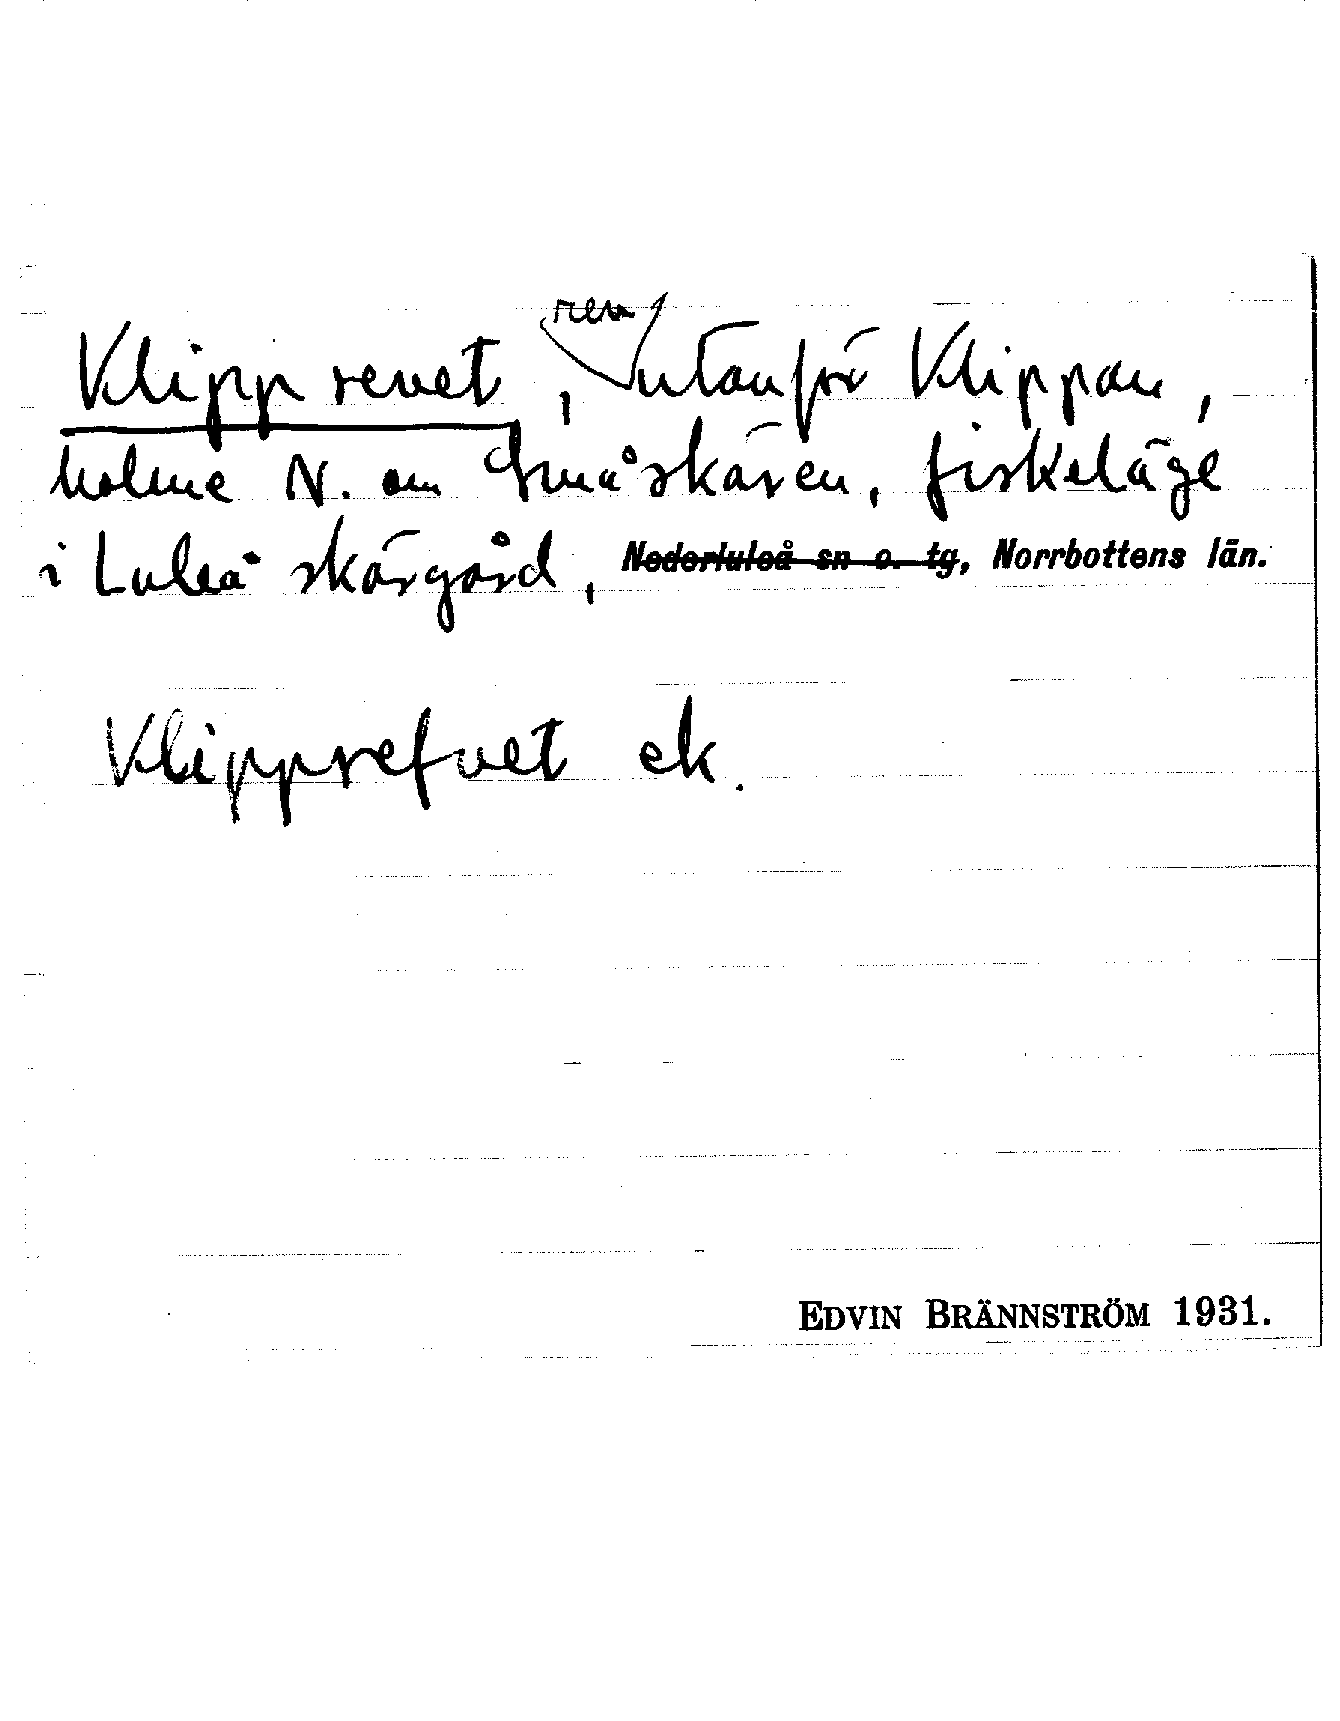 Klipprevet, rev utanför Klippan,
holme N. om Småskären, fiskeläge
i Luleå skärgård, Nederluleå sn o. tg, Norrbottens län.
Klipprefvet ek.
EDVIN BRÄNNSTRÖM 1931.